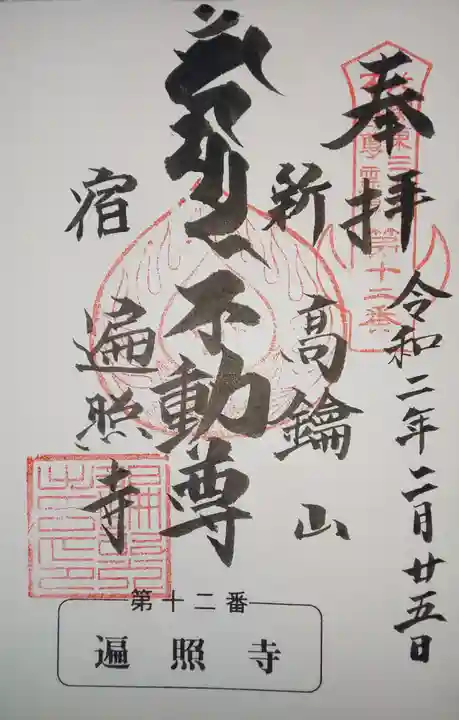 奉拝
令和二年二月廿五日
新高鑰山
不動尊
宿遍照寺
第十二番
第十二番
遍照寺